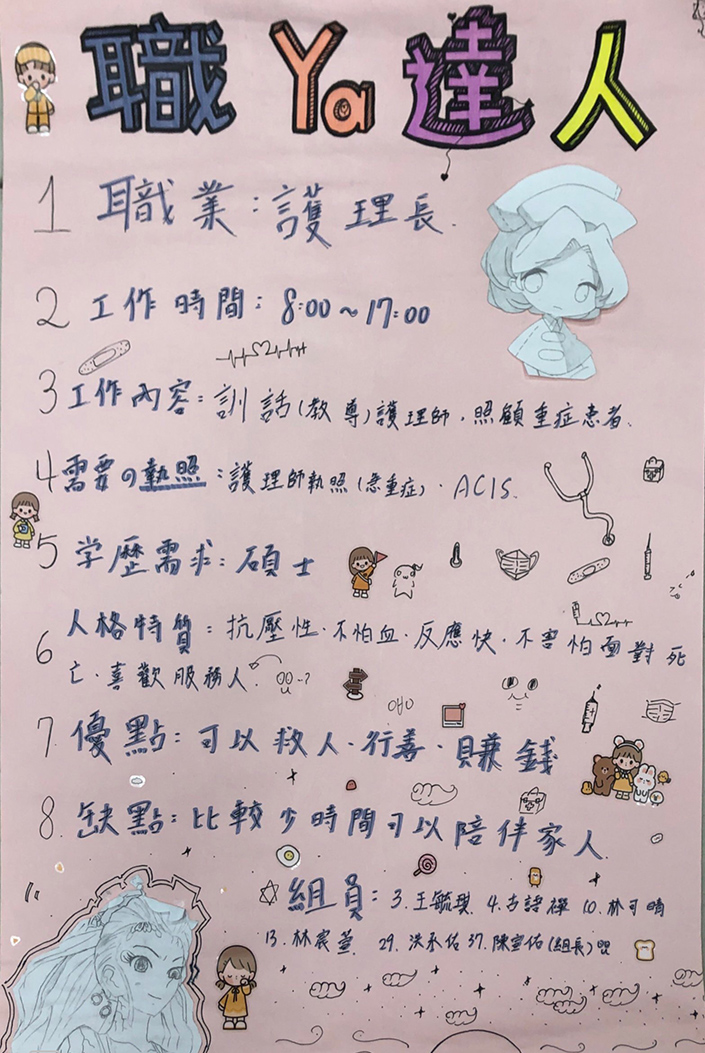 職Ya達人
1 職業:護理長.
2 工作時間:8:00~17:00
3 工作內容:訓話(教導)護理師.照顧重症患者.
4 需要の執照:護理師執照(急重症)·ACIS.
5 学歷需求:碩士
6 人格特質:抗壓性·不怕血·反應快·不害怕面對死
亡·喜歡服務人.
7 優點:可以救人·行善·賺錢
8. 缺點:比較少時間可以陪伴家人.
組員:3.王毓 4.古語禪 10.林可晴
13.林宸萱 29.洪丞佑 37.陳宣佑(組長)